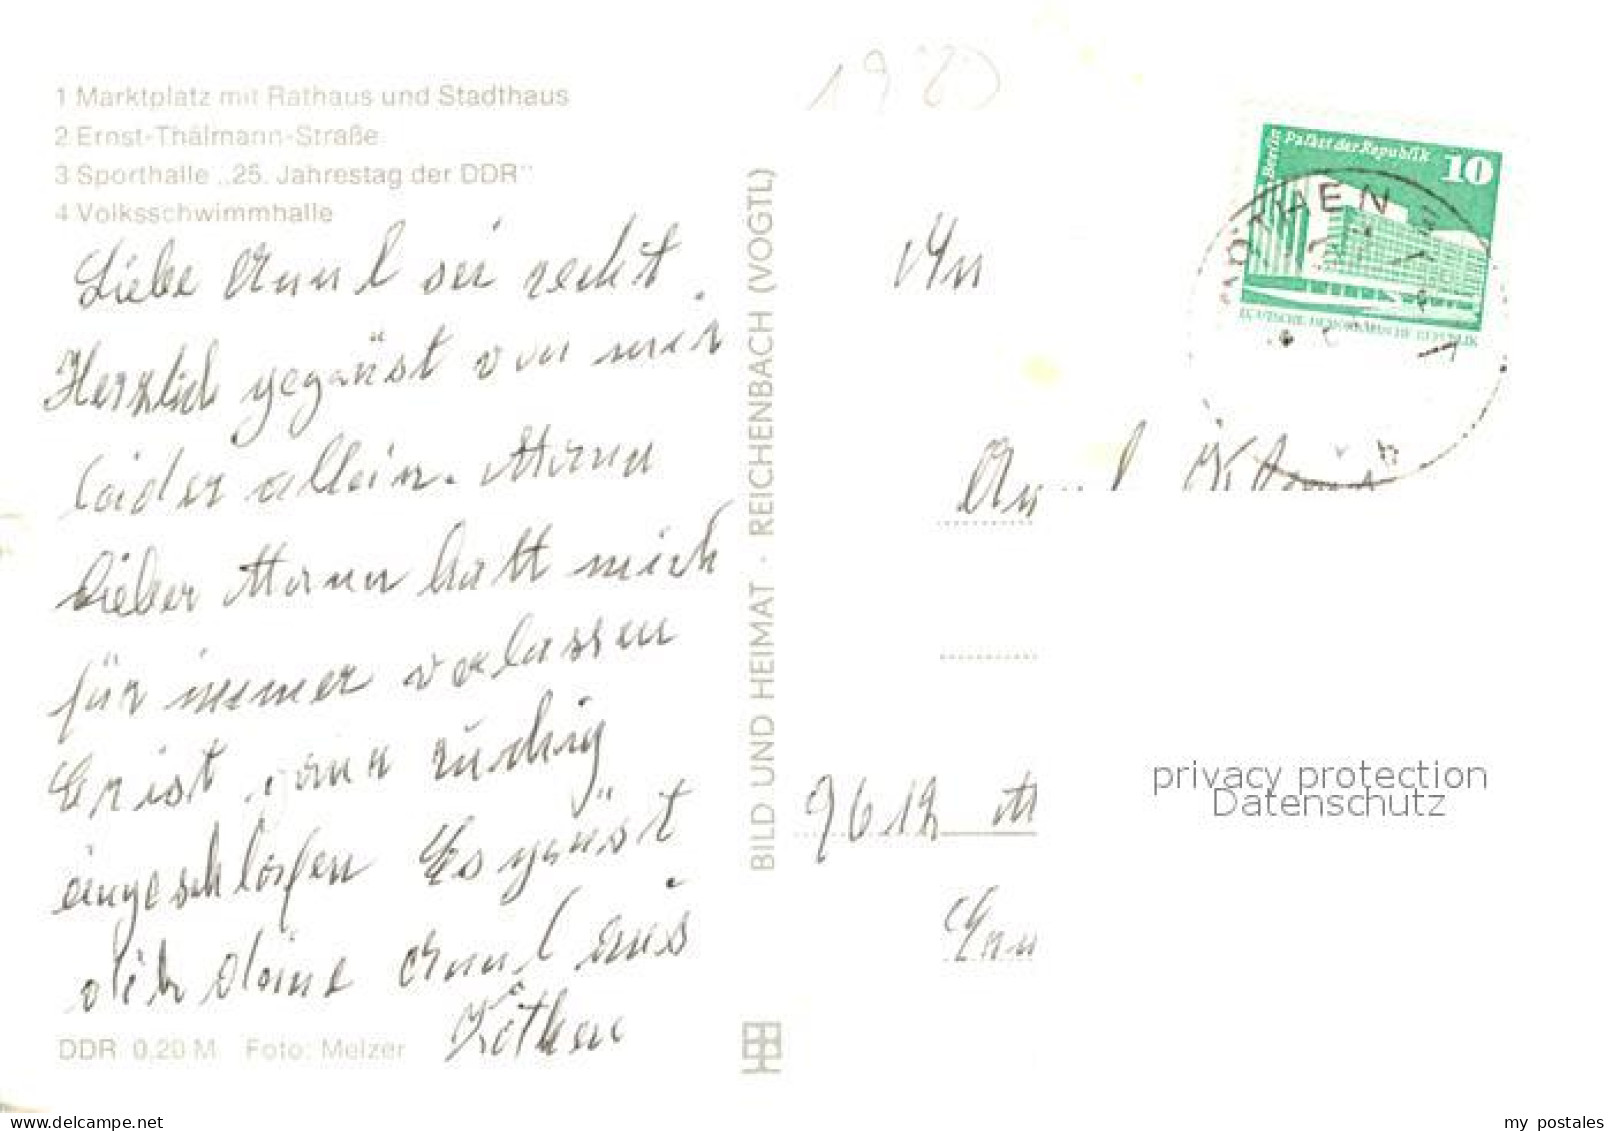 1 Marktplatz mit Rathaus und Stadthaus
2 Ernst-Thälmann-Straße
3 Sporthalle „25. Jahrestag der DDR"
4 Volksschwimmhalle
Liebe sei recht
Herzlich gegrüst von mir
leider allein. Mann
lieber Mann hatt mich
für immer verlassen
Er ist ruhig
eingeschlafen Es grüst
dich deine aus
Köthen
DDR 0,20 M Foto: Melzer
BILD UND HEIMAT · REICHENBACH (VOGTL)
198
An
Berlin Palast der Republik
10
DEUTSCHE DEMOKRATISCHE REPUBLIK
KÖTHEN
privacy protection
Datenschutz
delcampe.net
my_postales